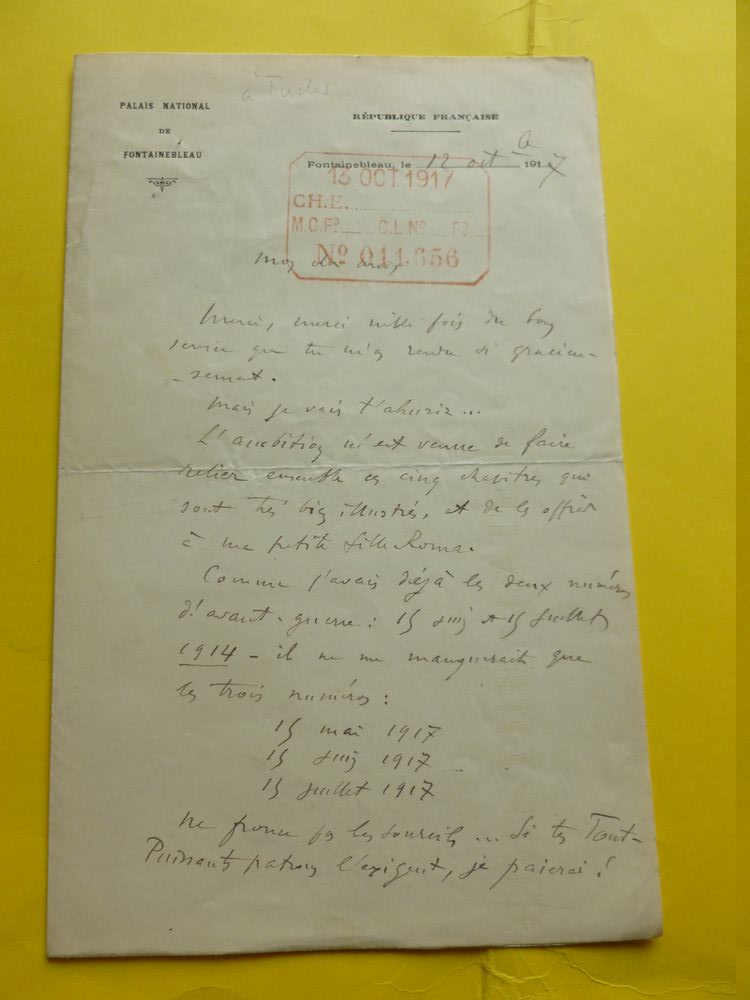 à Fuchs.
PALAIS NATIONAL
DE
FONTAINEBLEAU
RÉPUBLIQUE FRANÇAISE
Fontainebleau, le 12 oct 1917
13 OCT 1917
CH.E.
M.C.Fº C.L.Nº Fº
Nº 011.656
mon cher ami,
Merci, merci mille fois du bon
service que tu m'as rendu si gracieu-
-sement.
Mais je vais t'ahurir...
L'ambition m'est venue de faire
relier ensemble ces cinq chapitres qui
sont très bien illustrés, et de les offrir
à ma petite fille Roma.
Comme j'avais déjà les deux numéros
d'avant-guerre : 15 juin et 15 juillet
1914 - il ne me manquerait que
les trois numéros :
15 mai 1917
15 juin 1917
15 juillet 1917
Ne fronce pas les sourcils... Si tes Tout-
Puissants patrons l'exigent, je paierai !